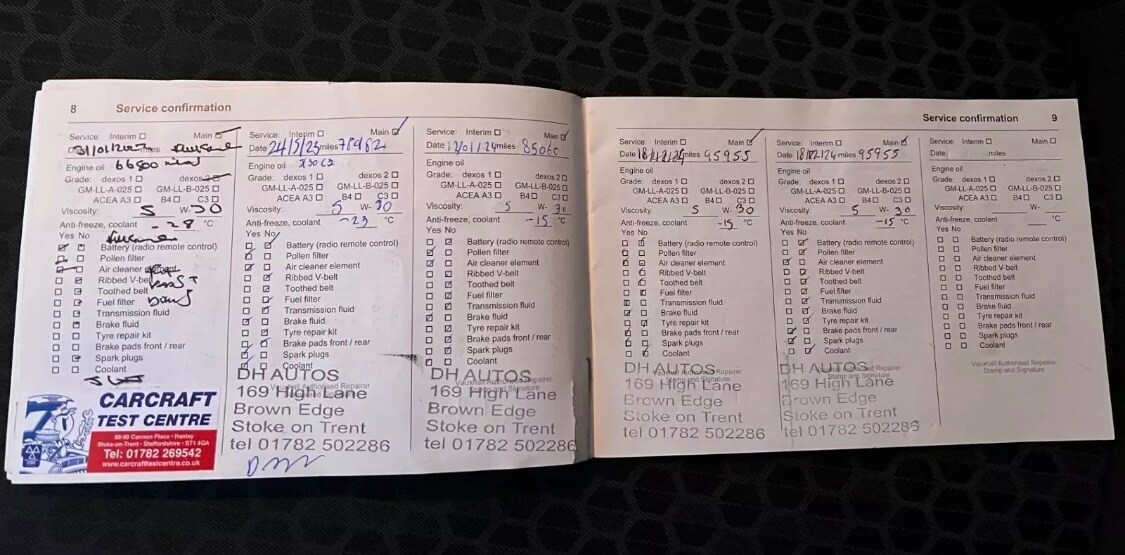 8 Service confirmation
Service: Interim Main
31/01/202 miles
Engine oil 66500 miles
Grade: dexos 1 dexos 2
GM-LL-A-025 GM-LL-B-025
ACEA A3 B4 C3
Viscosity: 5 W- 30
Anti-freeze, coolant -28 °C
Yes No
Battery (radio remote control)
Pollen filter
Air cleaner element
Ribbed V-belt
Toothed belt
Fuel filter
Transmission fluid
Brake fluid
Tyre repair kit
Brake pads front / rear
Spark plugs
Coolant
CARCRAFT
TEST CENTRE
88-90 Cannon Place • Hanley
Stoke-on-Trent • Staffordshire • ST1 4QA
Tel: 01782 269542
www.carcrafttestcentre.co.uk
Service: Interim Main
Date 24/5/23 miles 78982
Engine oil
Grade: dexos 1 dexos 2
GM-LL-A-025 GM-LL-B-025
ACEA A3 B4 C3
Viscosity: 5 W- 30
Anti-freeze, coolant -23 °C
Yes No
Battery (radio remote control)
Pollen filter
Air cleaner element
Ribbed V-belt
Toothed belt
Fuel filter
Transmission fluid
Brake fluid
Tyre repair kit
Brake pads front / rear
Spark plugs
Coolant
Vauxhall Authorised Repairer
DH AUTOS
169 High Lane
Brown Edge
Stoke on Trent
tel 01782 502286
Service: Interim Main
Date 12/01/24 miles 85060
Engine oil
Grade: dexos 1 dexos 2
GM-LL-A-025 GM-LL-B-025
ACEA A3 B4 C3
Viscosity: 5 W- 30
Anti-freeze, coolant -15 °C
Yes No
Battery (radio remote control)
Pollen filter
Air cleaner element
Ribbed V-belt
Toothed belt
Fuel filter
Transmission fluid
Brake fluid
Tyre repair kit
Brake pads front / rear
Spark plugs
Coolant
Vauxhall Authorised Repairer
Stamp and Signature
DH AUTOS
169 High Lane
Brown Edge
Stoke on Trent
tel 01782 502286
Service confirmation 9
Service: Interim Main
Date 18/12/24 miles 95955
Engine oil
Grade: dexos 1 dexos 2
GM-LL-A-025 GM-LL-B-025
ACEA A3 B4 C3
Viscosity: 5 W- 30
Anti-freeze, coolant -15 °C
Yes No
Battery (radio remote control)
Pollen filter
Air cleaner element
Ribbed V-belt
Toothed belt
Fuel filter
Transmission fluid
Brake fluid
Tyre repair kit
Brake pads front / rear
Spark plugs
Coolant
Vauxhall Authorised Repairer
Stamp and Signature
DH AUTOS
169 High Lane
Brown Edge
Stoke on Trent
tel 01782 502286
Service: Interim Main
Date 18/12/24 miles 95955
Engine oil
Grade: dexos 1 dexos 2
GM-LL-A-025 GM-LL-B-025
ACEA A3 B4 C3
Viscosity: 5 W- 30
Anti-freeze, coolant -15 °C
Yes No
Battery (radio remote control)
Pollen filter
Air cleaner element
Ribbed V-belt
Toothed belt
Fuel filter
Transmission fluid
Brake fluid
Tyre repair kit
Brake pads front / rear
Spark plugs
Coolant
Vauxhall Authorised Repairer
Stamp and Signature
DH AUTOS
169 High Lane
Brown Edge
Stoke on Trent
tel 01782 502286
Service: Interim Main
Date miles
Engine oil
Grade: dexos 1 dexos 2
GM-LL-A-025 GM-LL-B-025
ACEA A3 B4 C3
Viscosity: W-
Anti-freeze, coolant °C
Yes No
Battery (radio remote control)
Pollen filter
Air cleaner element
Ribbed V-belt
Toothed belt
Fuel filter
Transmission fluid
Brake fluid
Tyre repair kit
Brake pads front / rear
Spark plugs
Coolant
Vauxhall Authorised Repairer
Stamp and Signature